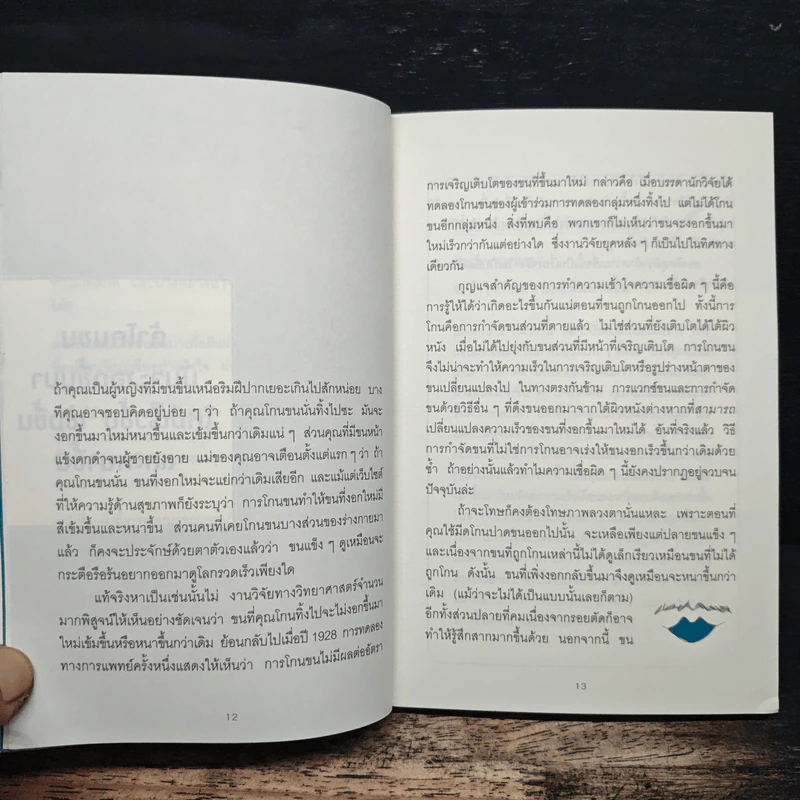 ถ้าคุณเป็นผู้หญิงที่มีขนขึ้นเหนือริมฝีปากเยอะเกินไปสักหน่อย บาง
ทีคุณอาจชอบคิดอยู่บ่อย ๆ ว่า ถ้าคุณโกนขนนั่นทิ้งไปซะ มันจะ
งอกขึ้นมาใหม่หนาขึ้นและเข้มขึ้นกว่าเดิมแน่ ๆ ส่วนคุณที่มีขนหน้า
แข้งดกดำจนผู้ชายยังอาย แม่ของคุณอาจเตือนตั้งแต่แรกๆ ว่า ถ้า
คุณโกนขนนั่น ขนที่งอกใหม่จะแย่กว่าเดิมเสียอีก และแม้แต่เว็บไซต์
ที่ให้ความรู้ด้านสุขภาพก็ยังระบุว่า การโกนขนทำให้ขนที่งอกใหม่มี
สีเข้มขึ้นและหนาขึ้น ส่วนคนที่เคยโกนขนบางส่วนของร่างกายมา
แล้ว ก็คงจะประจักษ์ด้วยตาตัวเองแล้วว่า ขนแข็ง ๆ ดูเหมือนจะ
กระตือรือร้นอยากออกมาดูโลกรวดเร็วเพียงใด
แท้จริงหาเป็นเช่นนั้นไม่ งานวิจัยทางวิทยาศาสตร์จำนวน
มากพิสูจน์ให้เห็นอย่างชัดเจนว่า ขนที่คุณโกนทิ้งไปจะไม่งอกขึ้นมา
ใหม่เข้มขึ้นหรือหนาขึ้นกว่าเดิม ย้อนกลับไปเมื่อปี 1928 การทดลอง
ทางการแพทย์ครั้งหนึ่งแสดงให้เห็นว่า การโกนขนไม่มีผลต่ออัตรา
12
การเจริญเติบโตของขนที่ขึ้นมาใหม่ กล่าวคือ เมื่อบรรดานักวิจัยได้
ทดลองโกนขนของผู้เข้าร่วมการทดลองกลุ่มหนึ่งทิ้งไป แต่ไม่ได้โกน
ขนอีกกลุ่มหนึ่ง สิ่งที่พบคือ พวกเขาก็ไม่เห็นว่าขนจะงอกขึ้นมา
ใหม่เร็วกว่ากันแต่อย่างใด ซึ่งงานวิจัยยุคหลัง ๆ ก็เป็นไปในทิศทาง
เดียวกัน
กุญแจสำคัญของการทำความเข้าใจความเชื่อผิด ๆ นี้คือ
การรู้ให้ได้ว่าเกิดอะไรขึ้นกันแน่ตอนที่ขนถูกโกนออกไป ทั้งนี้การ
โกนคือการกำจัดขนส่วนที่ตายแล้ว ไม่ใช่ส่วนที่ยังเติบโตได้ใต้ผิว
หนัง เมื่อไม่ได้ไปยุ่งกับขนส่วนที่มีหน้าที่เจริญเติบโต การโกนขน
จึงไม่น่าจะทำให้ความเร็วในการเจริญเติบโตหรือรูปร่างหน้าตาของ
ขนเปลี่ยนแปลงไป ในทางตรงกันข้าม การแวกซ์ขนและการกำจัด
ขนด้วยวิธีอื่น ๆ ที่ดึงขนออกมาจากใต้ผิวหนังต่างหากที่สามารถ
เปลี่ยนแปลงความเร็วของขนที่งอกขึ้นมาใหม่ได้ อันที่จริงแล้ว วิธี
การกำจัดขนที่ไม่ใช่การโกนอาจเร่งให้ขนงอกเร็วขึ้นกว่าเดิมด้วย
ซ้ำ ถ้าอย่างนั้นแล้วทำไมความเชื่อผิด ๆ นี้ยังคงปรากฏอยู่จวบจน
ปัจจุบันล่ะ
ถ้าจะโทษก็คงต้องโทษภาพลวงตานั่นแหละ เพราะตอนที่
คุณใช้มีดโกนปาดขนออกไปนั้น จะเหลือเพียงแต่ปลายขนแข็ง ๆ
และเนื่องจากขนที่ถูกโกนเหล่านี้ไม่ได้ดูเล็กเรียวเหมือนขนที่ไม่ได้
ถูกโกน ดังนั้น ขนที่เพิ่งงอกกลับขึ้นมาจึงดูเหมือนจะหนาขึ้นกว่า
เดิม (แม้ว่าจะไม่ได้เป็นแบบนั้นเลยก็ตาม)
อีกทั้งส่วนปลายที่คมเนื่องจากรอยตัดก็อาจ
ทำให้รู้สึกสากมากขึ้นด้วย นอกจากนี้ ขน
13